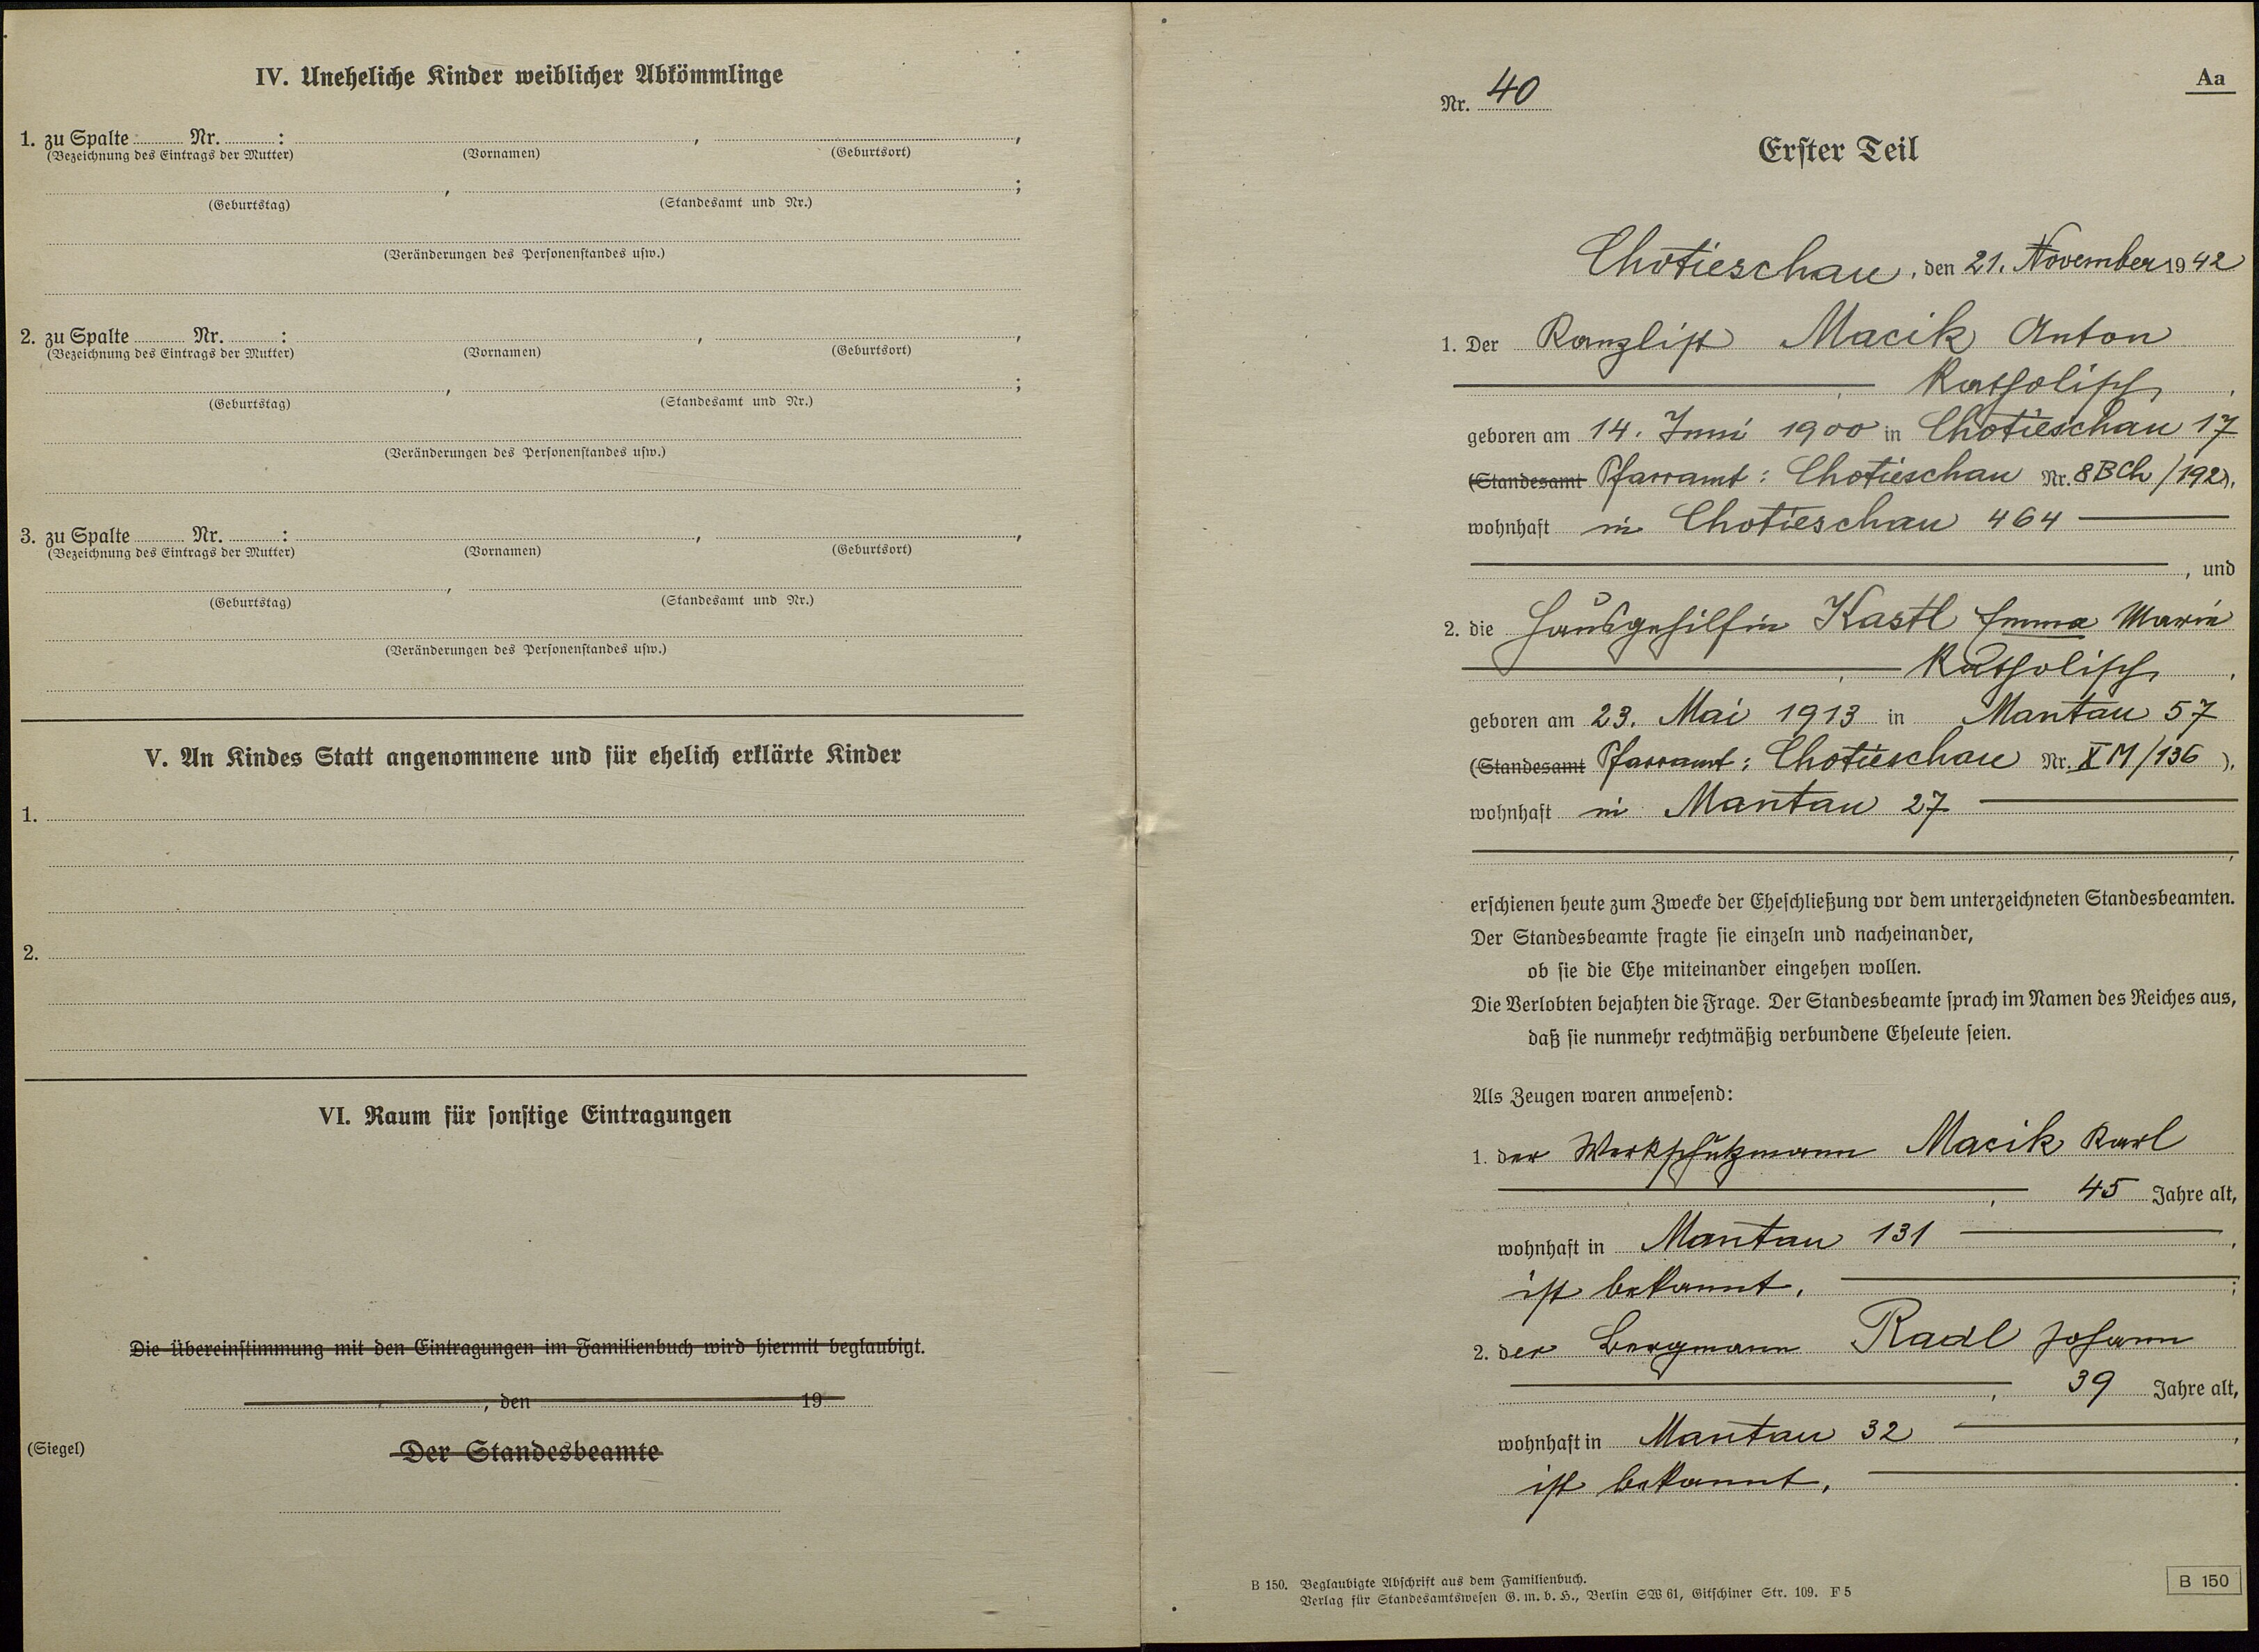 IV. Uneheliche Kinder weiblicher Abkömmlinge
1. zu Spalte Nr. : , ,
(Bezeichnung des Eintrags der Mutter) (Vornamen) (Geburtsort)
, ;
(Geburtstag) (Standesamt und Nr.)
(Veränderungen des Personenstandes usw.)
2. zu Spalte Nr. : , ,
(Bezeichnung des Eintrags der Mutter) (Vornamen) (Geburtsort)
, ;
(Geburtstag) (Standesamt und Nr.)
(Veränderungen des Personenstandes usw.)
3. zu Spalte Nr. : , ,
(Bezeichnung des Eintrags der Mutter) (Vornamen) (Geburtsort)
,
(Geburtstag) (Standesamt und Nr.)
(Veränderungen des Personenstandes usw.)
V. An Kindes Statt angenommene und für ehelich erklärte Kinder
1.
2.
VI. Raum für sonstige Eintragungen
Die Übereinstimmung mit den Eintragungen im Familienbuch wird hiermit beglaubigt.
, den 19
(Siegel) Der Standesbeamte
Aa
Nr. 40
Erster Teil
Chotieschau, den 21. November 1942
1. Der Kanzlist Macik Anton
Katholisch,
geboren am 14. Juni 1900 in Chotieschau 17
(Standesamt Pfarramt: Chotieschau Nr. 8 BCh/192).
wohnhaft in Chotieschau 464
, und
2. die Hausgehilfin Kastl Emma Marie
Katholisch,
geboren am 23. Mai 1913 in Mantau 57
(Standesamt Pfarramt: Chotieschau Nr. X M/136 ).
wohnhaft in Mantau 27
,
erschienen heute zum Zwecke der Eheschließung vor dem unterzeichneten Standesbeamten.
Der Standesbeamte fragte sie einzeln und nacheinander,
ob sie die Ehe miteinander eingehen wollen.
Die Verlobten bejahten die Frage. Der Standesbeamte sprach im Namen des Reiches aus,
daß sie nunmehr rechtmäßig verbundene Eheleute seien.
Als Zeugen waren anwesend:
1. der Werkschutzmann Macik Karl
, 45 Jahre alt,
wohnhaft in Mantau 131 ,
ist bekannt. ;
2. der Bergmann Radl Johann
, 39 Jahre alt,
wohnhaft in Mantau 32 ,
ist bekannt.
B 150. Beglaubigte Abschrift aus dem Familienbuch.
Verlag für Standesamtswesen G. m. b. H., Berlin SW 61, Gitschiner Str. 109. F 5
B 150